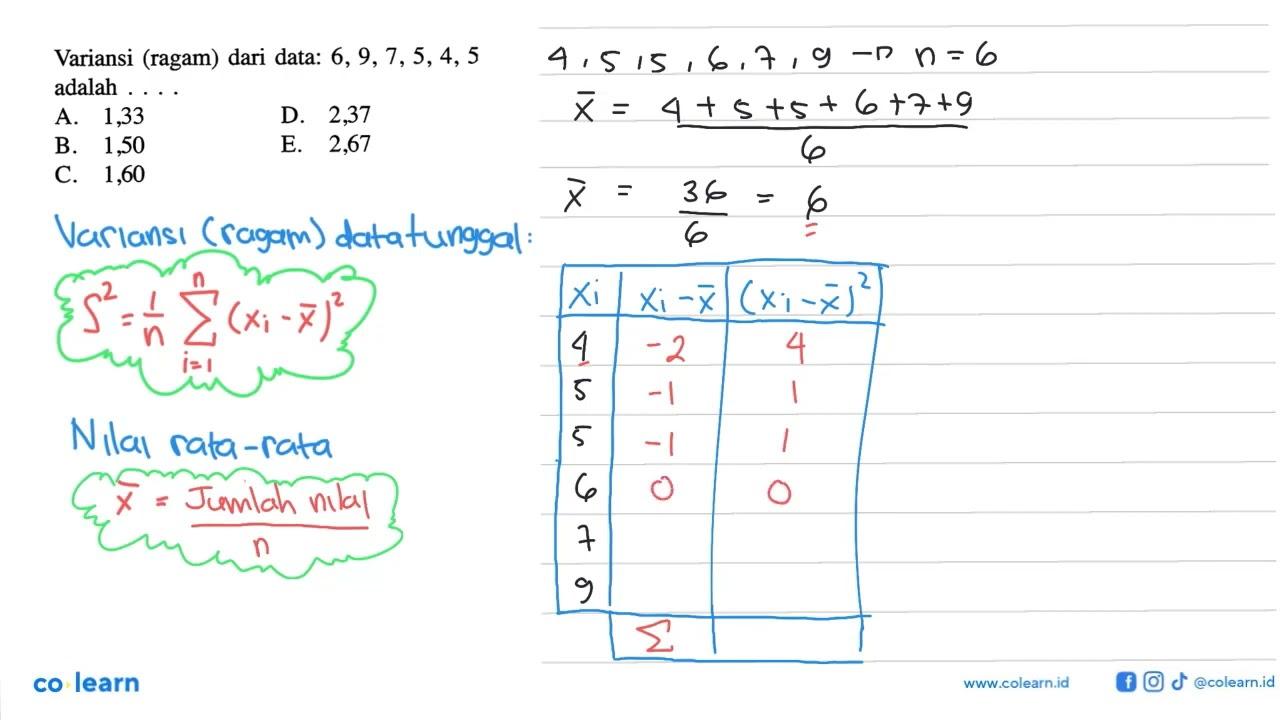 Variansi (ragam) dari data: 6, 9, 7, 5, 4, 5
adalah . . . .
A. 1,33 D. 2,37
B. 1,50 E. 2,67
C. 1,60
Variansi (ragam) data tunggal:
S² = 1/n n Σ i=1 (xi - x̄)²
Nilai rata-rata
x̄ = Jumlah nilai / n
4, 5, 5, 6, 7, 9 → n = 6
x̄ = 4 + 5 + 5 + 6 + 7 + 9 / 6
x̄ = 36 / 6 = 6
xi xi - x̄ (xi - x̄)²
4 -2 4
5 -1 1
5 -1 1
6 0 0
7
9
Σ
co learn
www.colearn.id @colearn.id